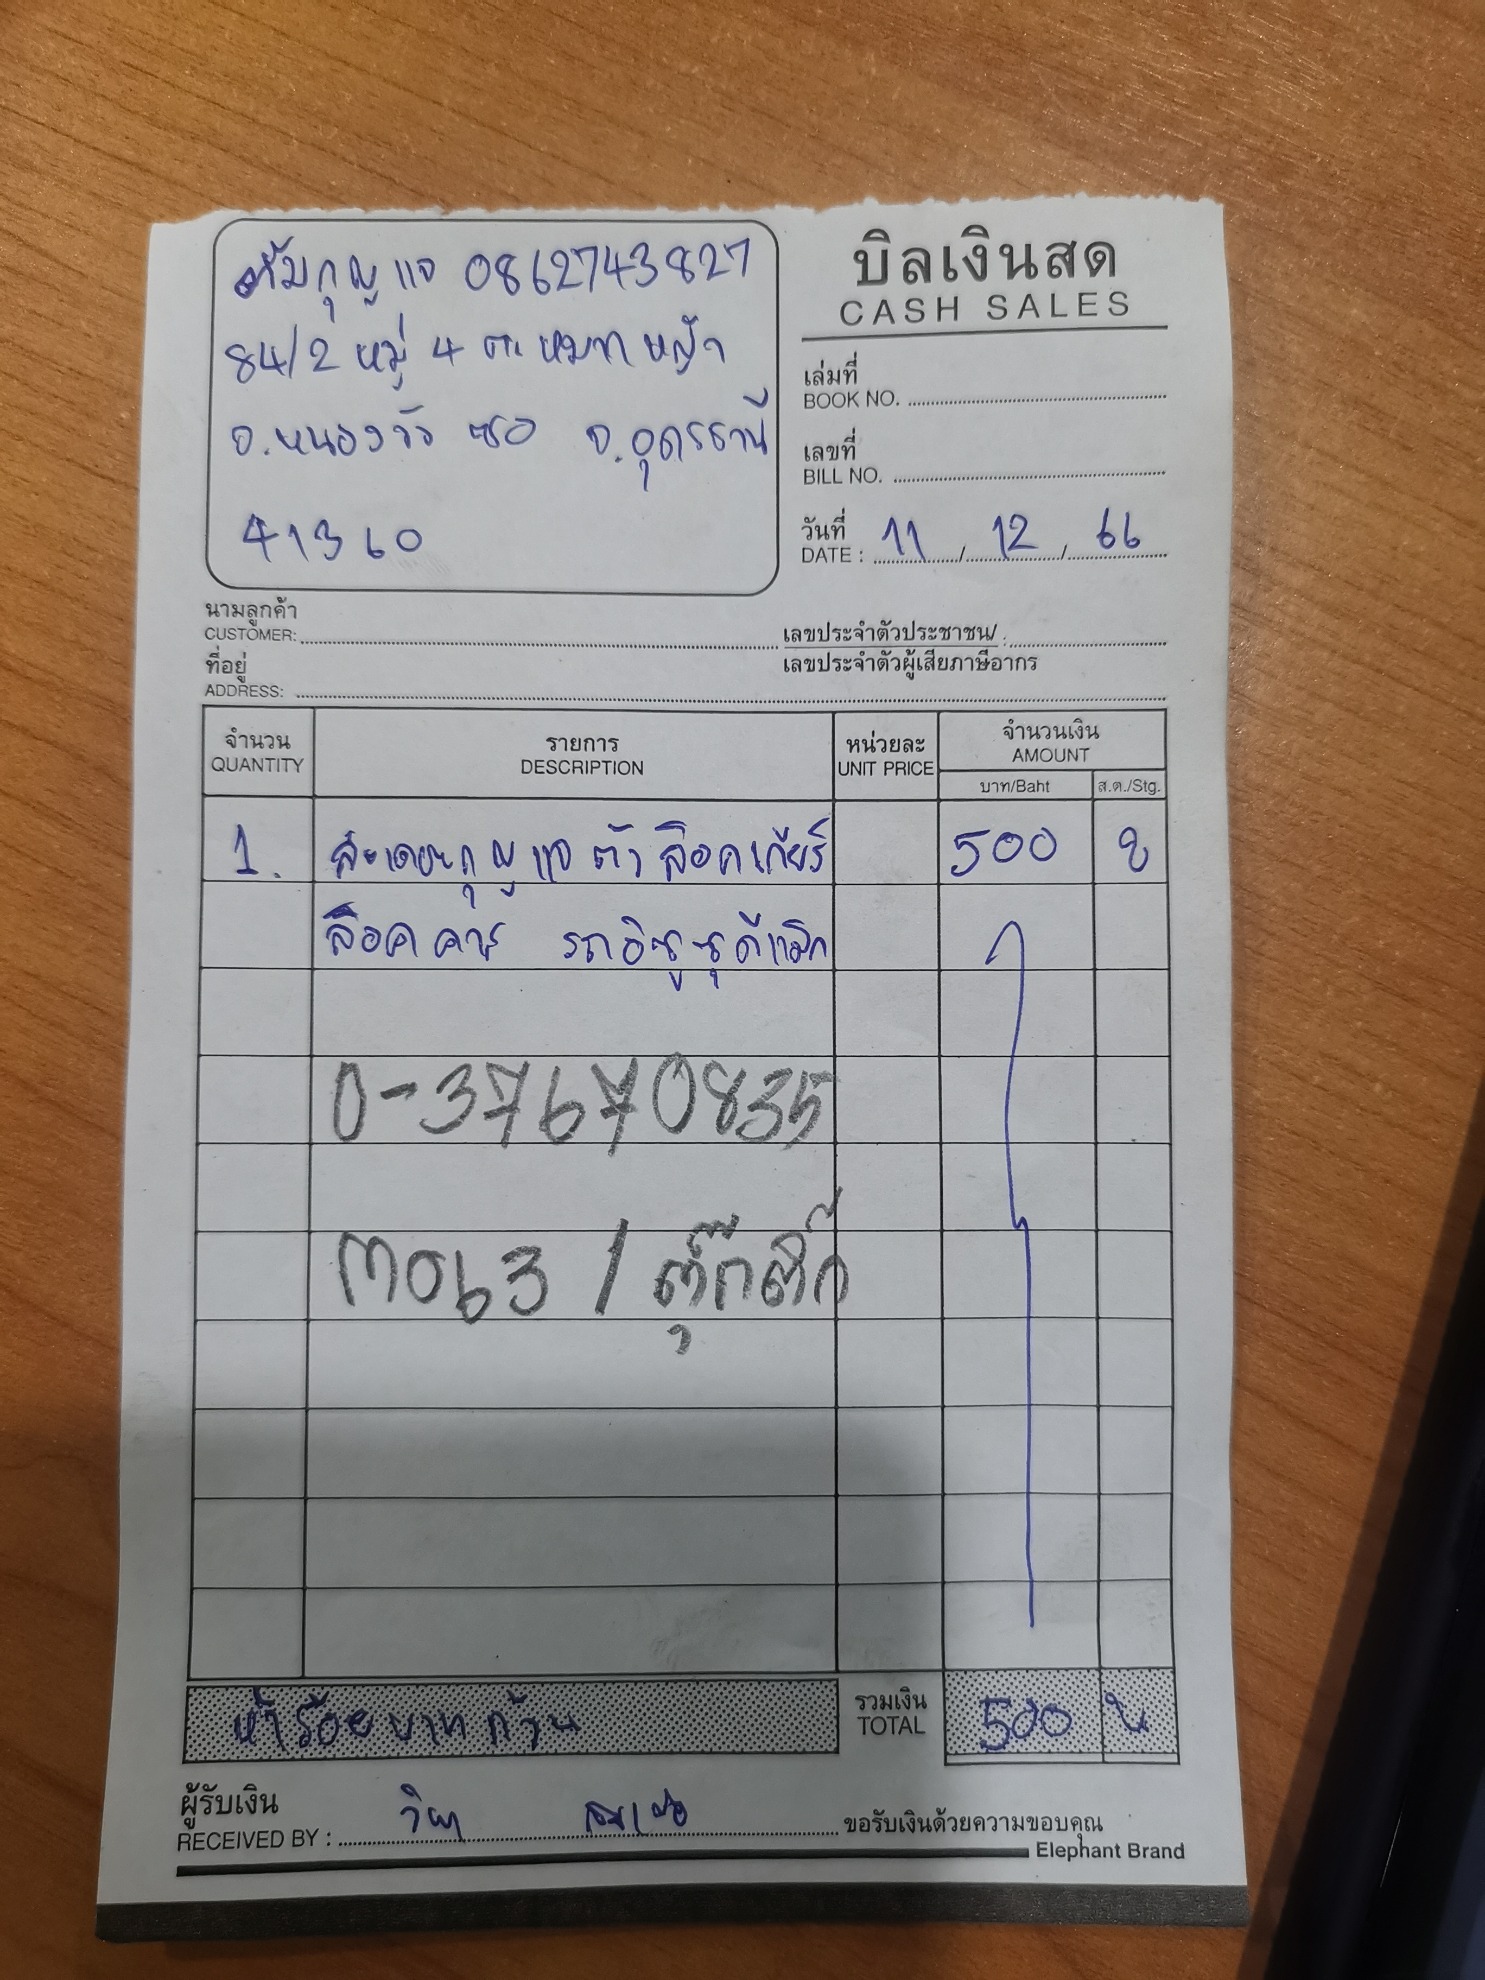 บิลเงินสด
CASH SALES
ปั๊มกุญแจ 0862743827
84/2 หมู่ 4 ต. หมากหญ้า
อ.หนองวัวซอ จ.อุดรธานี
41360
เล่มที่
BOOK NO.
เลขที่
BILL NO.
วันที่
DATE : 11 / 12 / 66
นามลูกค้า
CUSTOMER:
เลขประจำตัวประชาชน/
เลขประจำตัวผู้เสียภาษีอากร
ที่อยู่
ADDRESS:
จำนวน รายการ หน่วยละ จำนวนเงิน
QUANTITY DESCRIPTION UNIT PRICE AMOUNT
บาท/Baht ส.ต./Stg.
1. สะเดาะกุญแจ ตัวล็อคเกียร์ 500 บ
ล็อคคาร์ รถอีซูซุดีแม็ก
0-37670835
ก063 / ตุ๊กติ๊ก
ห้าร้อยบาทถ้วน รวมเงิน 500 บ
TOTAL
ผู้รับเงิน
RECEIVED BY : ขอรับเงินด้วยความขอบคุณ
Elephant Brand